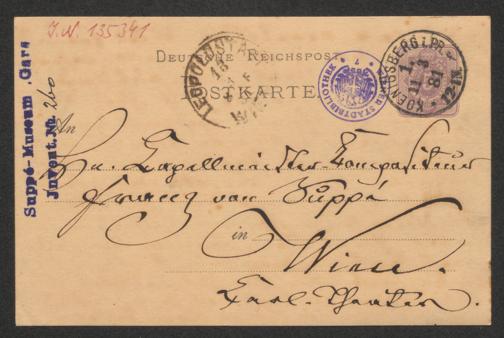 I.N. 135341
Suppé-Museum, Gars
Juvent. Nr. 200
DEUTSCHE REICHSPOST
POSTKARTE
LEOPOLDSTADT
WIEN
WIENER STADTBIBLIOTHEK
KOENIGSBERG i. PR.
11 3
81
An
Hn. Capellmeister-Compositeur
Franz von Suppé
in
Wien.
Carl-Theater.